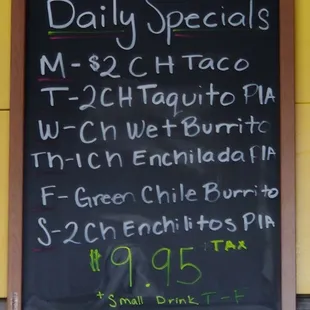 Daily Specials
M-$2 CH Taco
T-2CH Taquito PlA
W-Ch Wet Burrito
Th-1Ch Enchilada PlA
F-Green Chile Burrito
S-2Ch Enchilitos PlA
$9.95 +TAX
+ Small Drink T-F